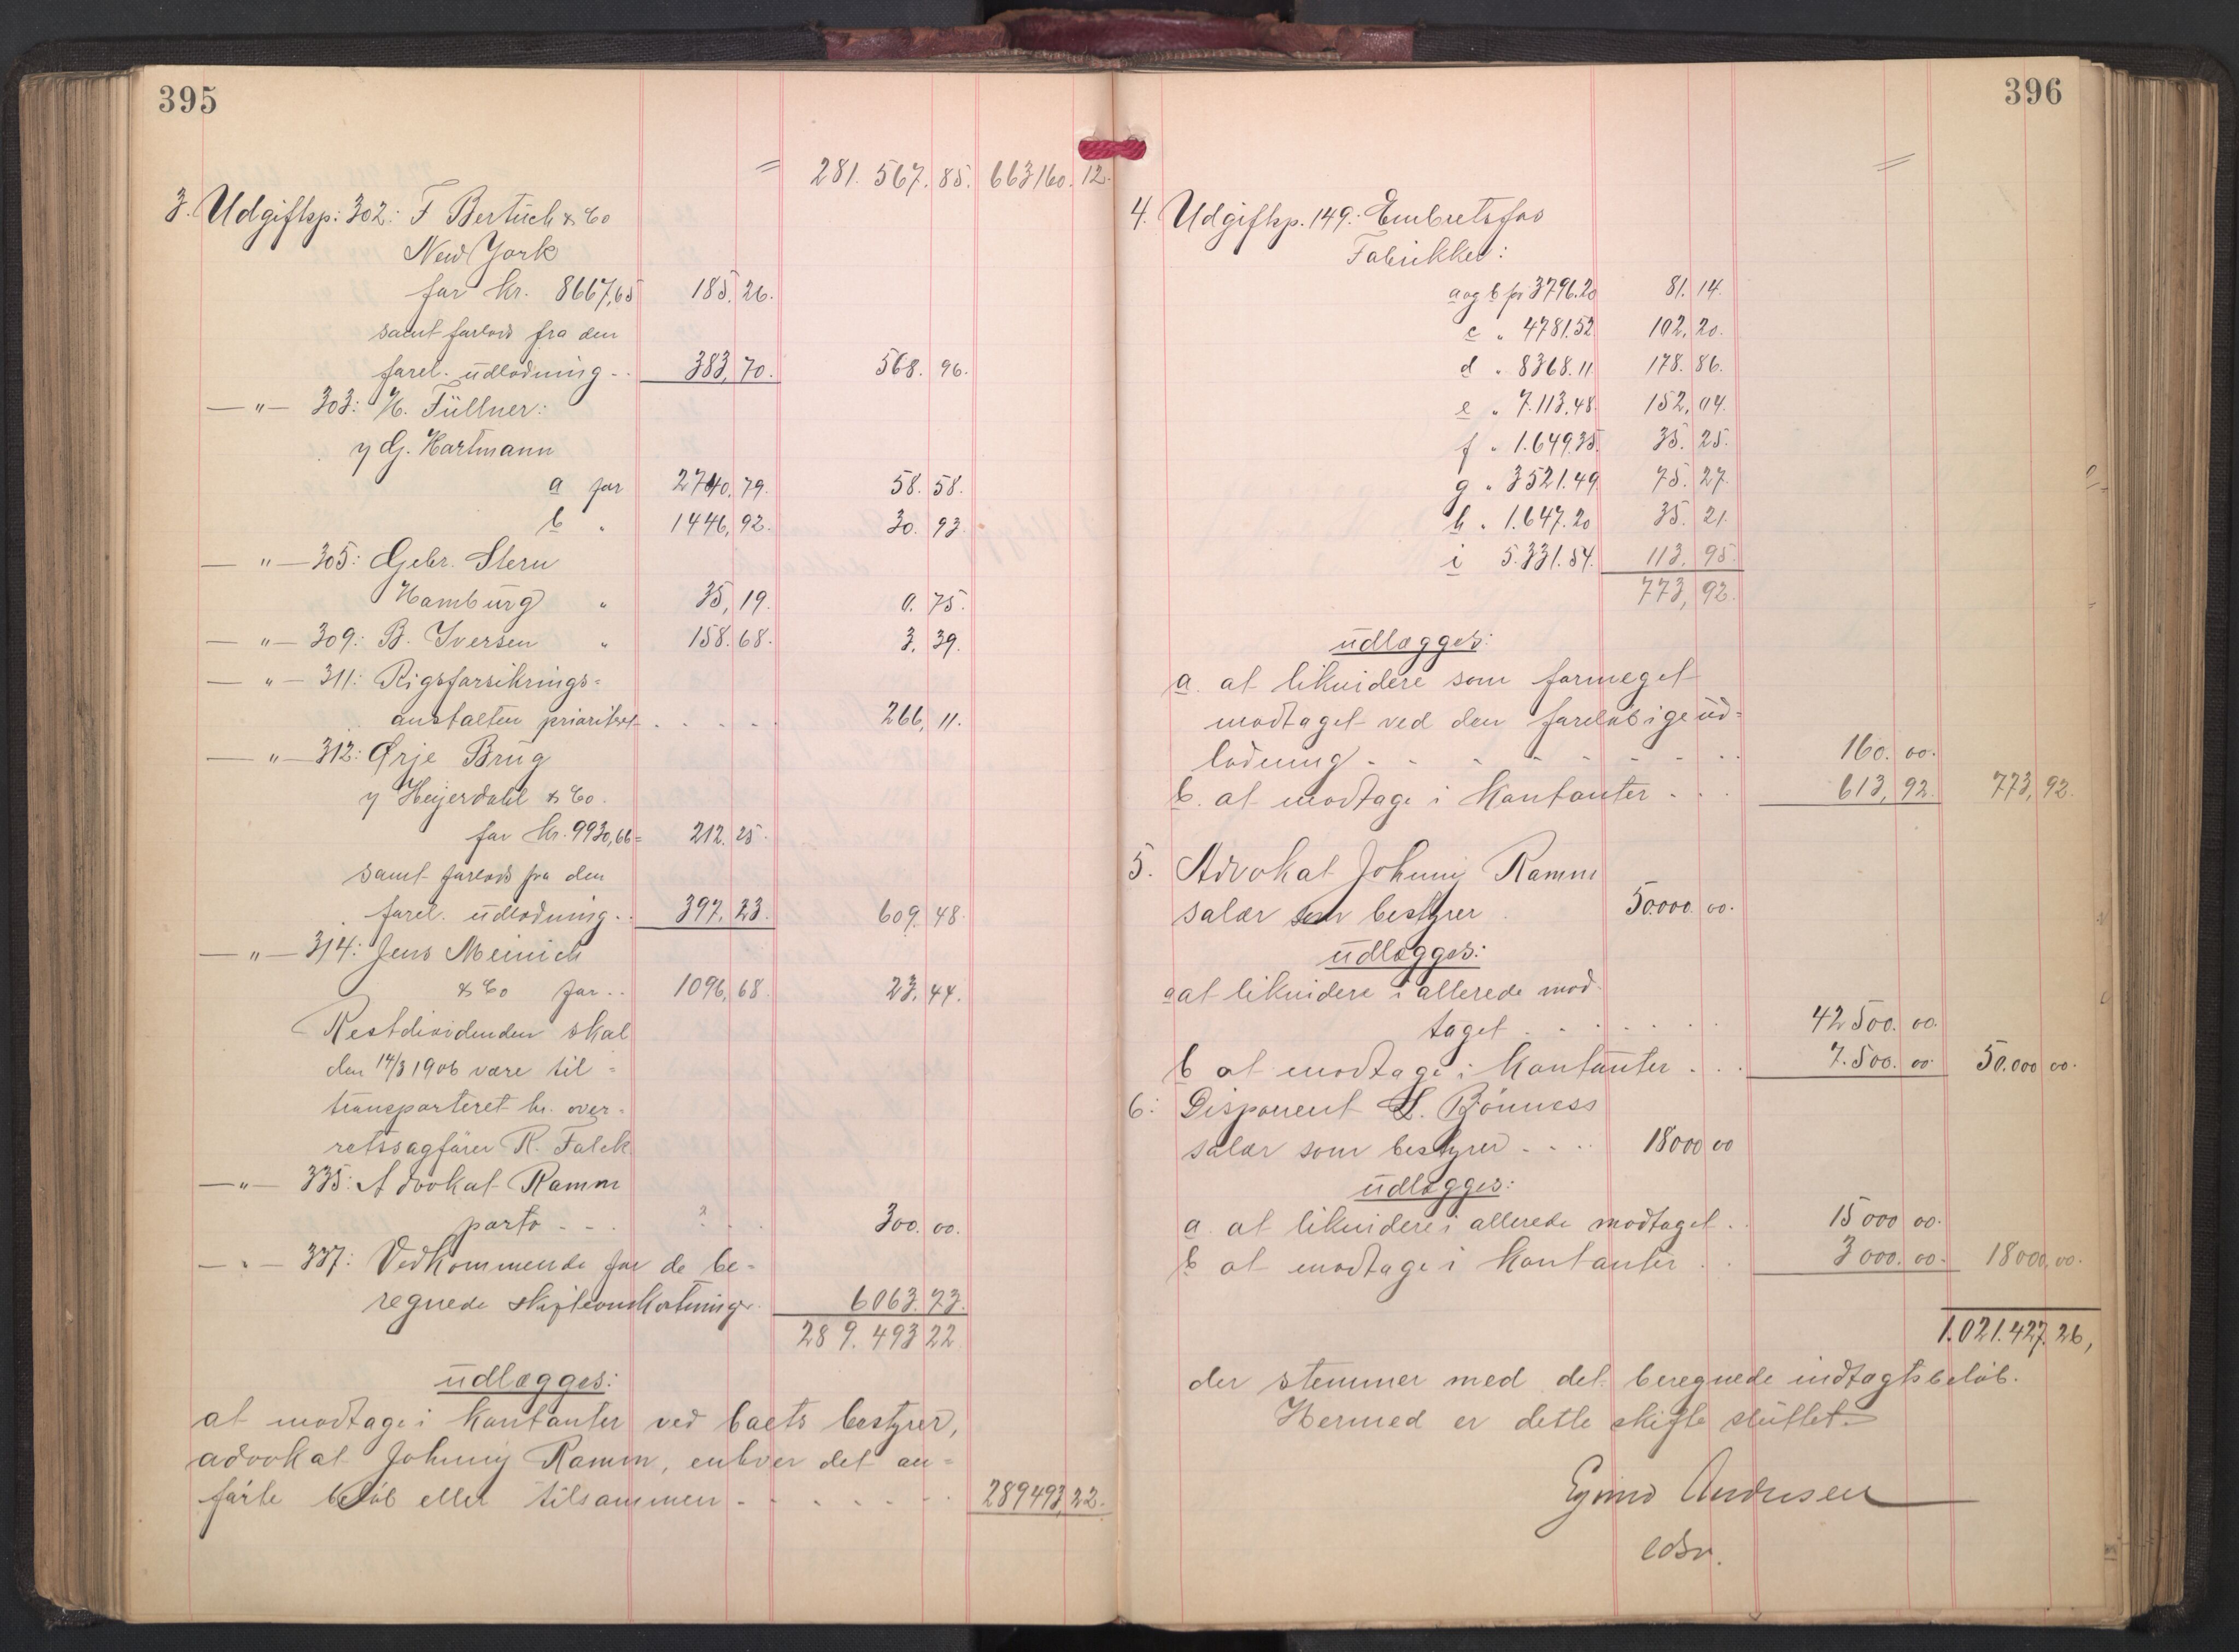 395
= 281.567.85. 663160.12.
3. Udgiftsp: 302: F Bertuch & Co
New York
for kr. 8667,65 185,26.
samt forlods fra den
forel. udlodning - 383,70. 568.96.
— " — 303: H. Füllner:
y G. Hartmann
a for 2740.79. 58.58.
b " 1446,92. 30.93.
— " — 305: Gebr. Stern
Hamburg " 35,19. 0.75.
— " — 309: B. Iversen " 158.68. 3.39.
— " — 311: Rigsforsikrings=
anstalten prioritet - - - - 266,11.
— " — 312: Ørje Brug
y Heyerdahl & Co.
for kr. 9930,66= 212.25.
samt forlods fra den
forel. udlodning - 397.23. 609.48.
— " — 314: Jens Meinich
& Co for - - 1096,68. 23.44.
Restdividenden skal
den 14/3 1906 være til=
transporteret hr. over-
retssagfører R. Falck
— " — 335: Advokat Ramm
porto - - . ? . . 300.00.
— " — 337: Vedkommende for de be-
regnede skifteomkostninger. 6063.73.
289.493 22
udlægges:
at modtage i kontanter ved boets bestyrer,
advokat Johnny Ramm, enhver det an=
førte beløb eller tilsammen - - - - - - 289493,22.
396
=
4. Udgiftsp. 149: Embretsfos
Fabrikker:
a og b for 3796.20 81.14.
c " 4781.52 102,20.
d " 8368.11 178.86.
e " 7.113.48. 152,04.
f " 1.649.35. 35.25.
g " 3521.49 75.27.
h " 1.647.20 35.21.
i 5.331.54. 113,95.
773,92.
udlægges:
a. at likvidere som formeget
modtaget ved den foreløbige ud=
lodning - - - - - - - - 160.00.
b. at modtage i kontanter - . . 613,92. 773,92.
5. Advokat Johnny Ramm
salær som bestyrer . 50.000.00.
udlægges:
a at likvidere i allerede mod-
taget - - - - - - 42 500.00.
b at modtage i kontanter . . . 7.500.00 50.000 00.
6: Disponent L. Bönness
salær som bestyrer - - - . 18000 00
udlægges:
a. at likvidere i allerede modtaget . . 15 000 00.
b at modtage i kontanter . . 3 000.00. 18000,00.
1.021.427.26,
der stemmer med det beregnede indtægtsbeløb.
Hermed er dette skifte sluttet.
Eyvind Andersen
edsv.